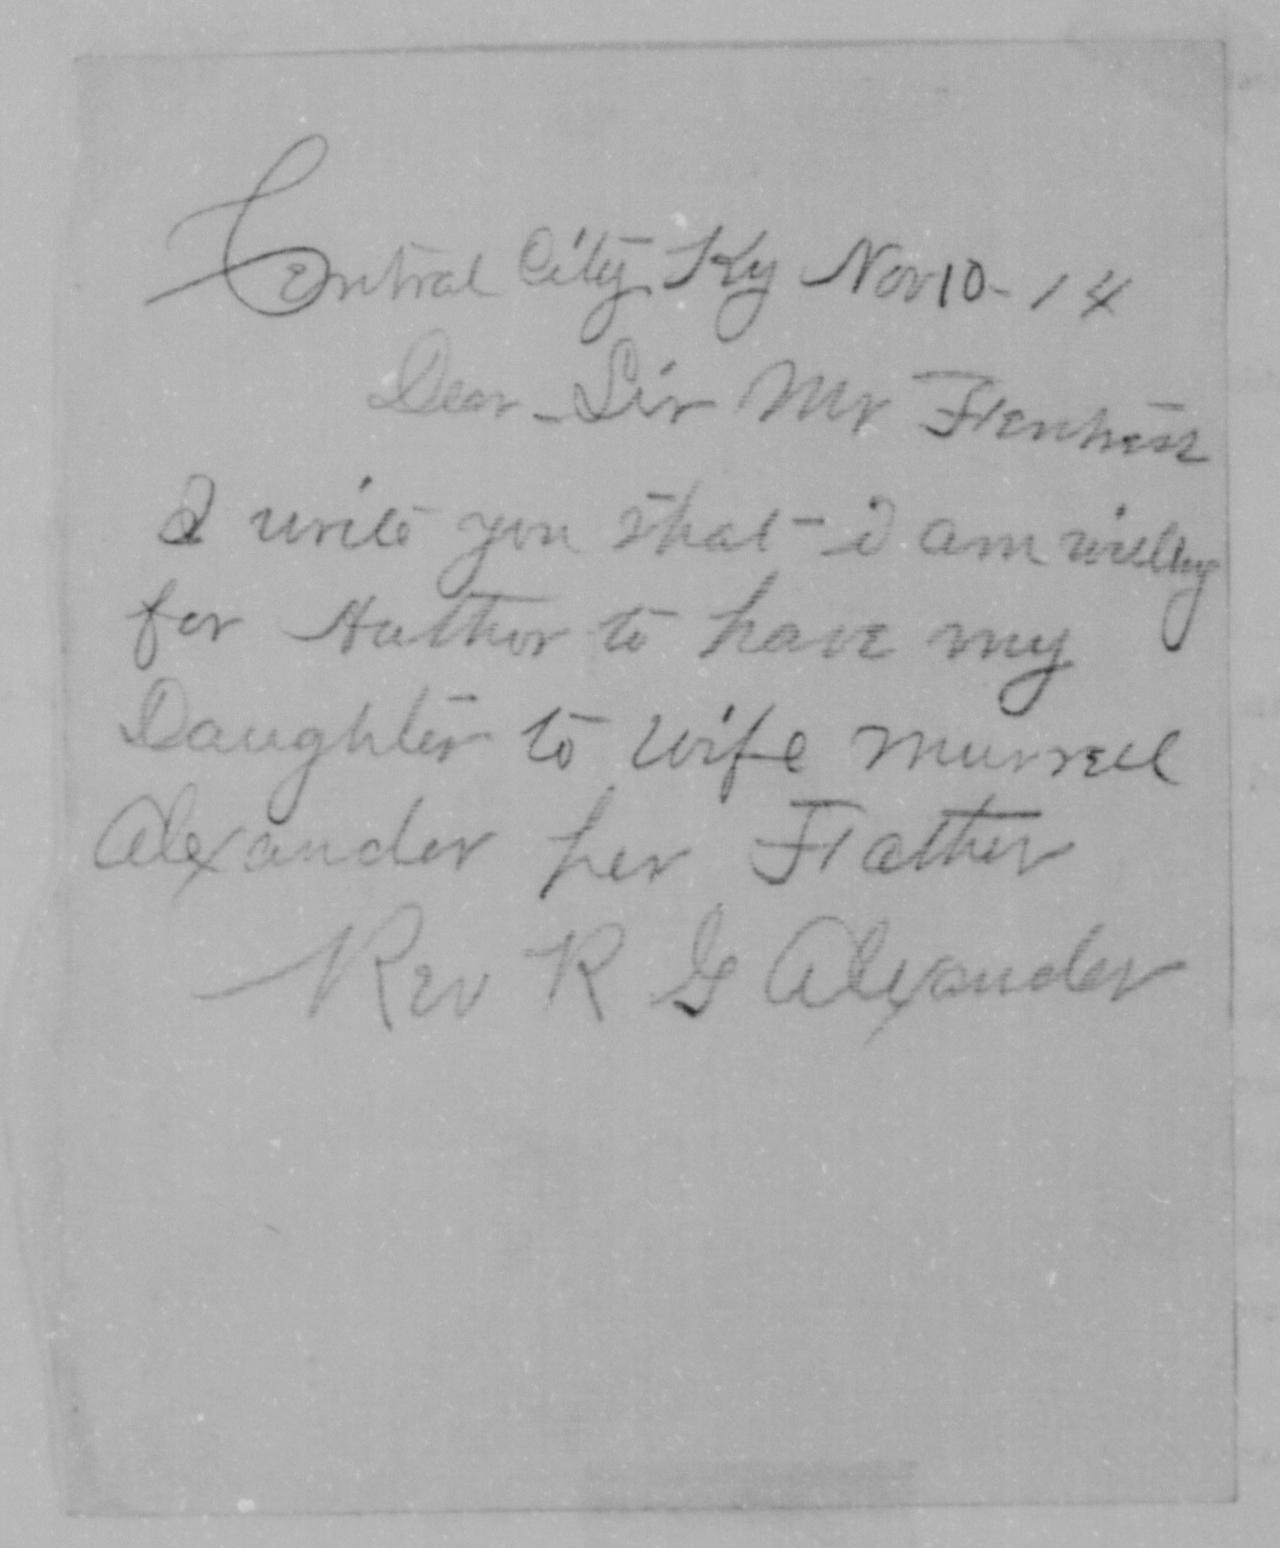 Central City Ky Nov 10 - 14
Dear Sir Mr
I write you that I am willing
for Author to have my
Daughter to wife Murrell
Alexander her Father
Rev R G Alexander